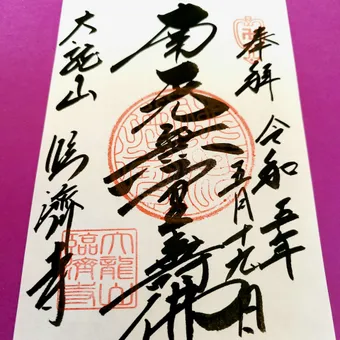 奉拝 令和五年
五月十九日
南无無量壽佛
大龍山 臨濟寺
大龍山
臨濟寺